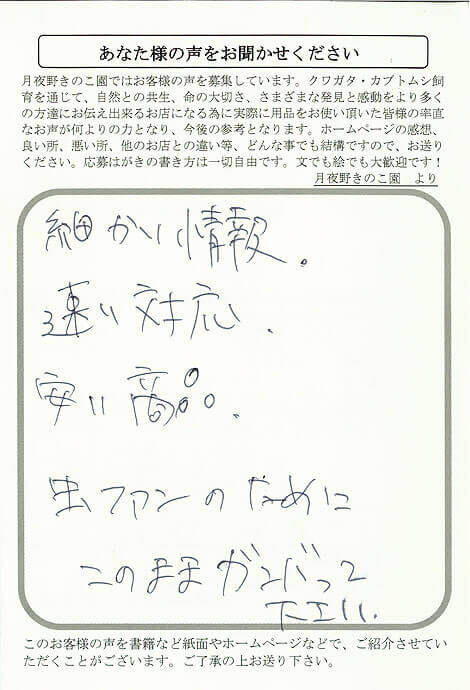 あなた様の声をお聞かせください
月夜野きのこ園ではお客様の声を募集しています。クワガタ・カブトムシ飼
育を通じて、自然との共生、命の大切さ、さまざまな発見と感動をより多く
の方達にお伝え出来るお店になる為に実際に用品をお使い頂いた皆様の率直
なお声が何よりの力となり、今後の参考となります。ホームページの感想、
良い所、悪い所、他のお店との違い等、どんな事でも結構ですので、お送り
ください。応募はがきの書き方は一切自由です。文でも絵でも大歓迎です！
月夜野きのこ園　より
細かい情報。
速い対応.
安い商品。
虫ファンのために
このままガンバって
下エい.
このお客様の声を書籍など紙面やホームページなどで、ご紹介させてい
ただくことがございます。ご了承の上お送り下さい。